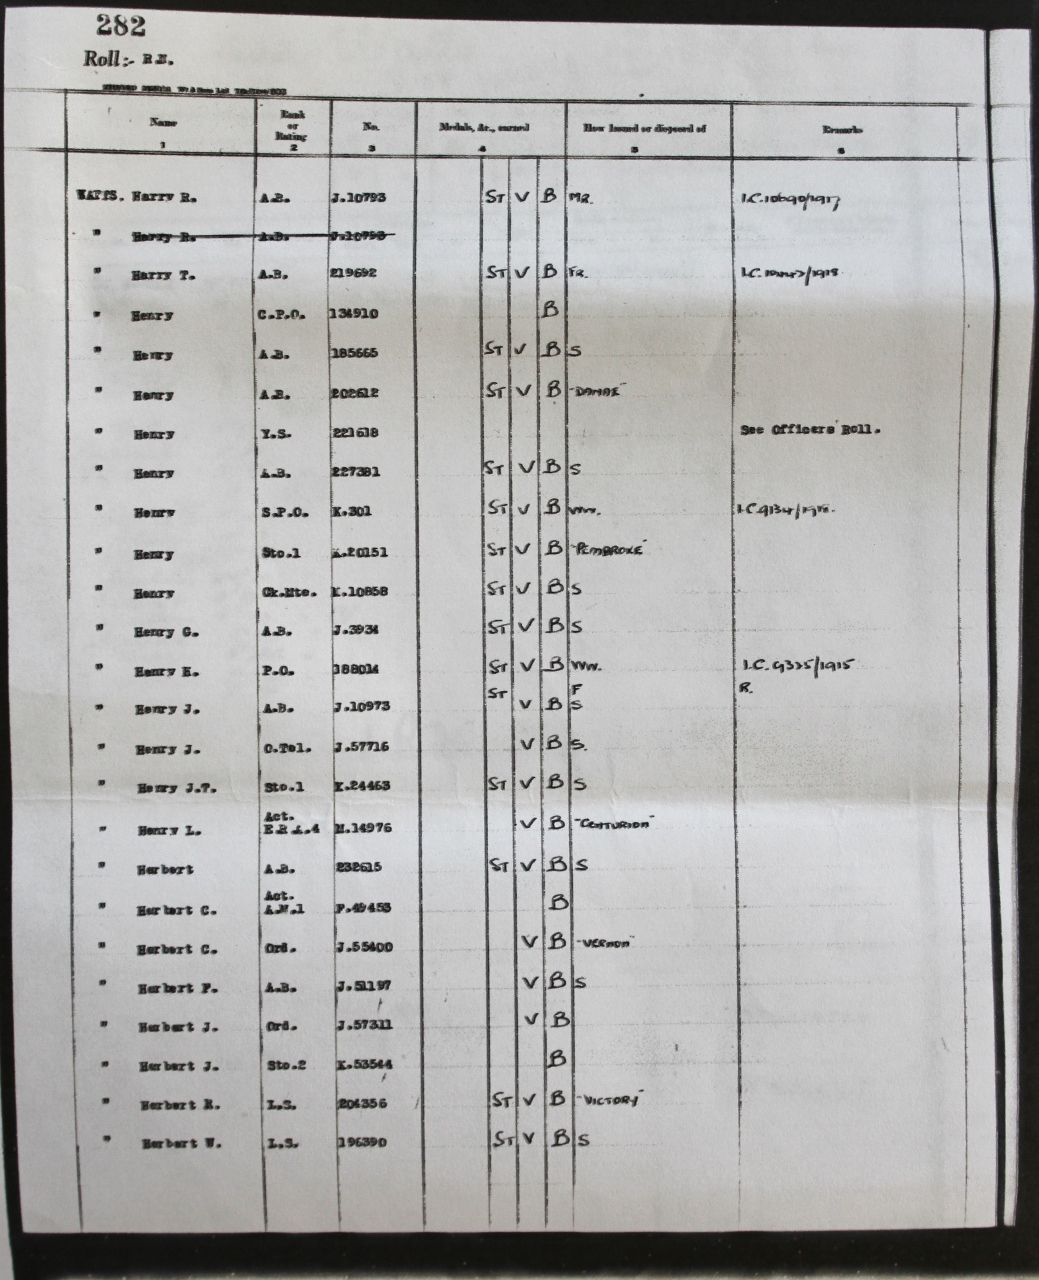 282
Roll:- R.N.
Name Rank or Rating No. Medals, &c., earned How Issued or disposed of Remarks
1 2 3 4 5 6
WATTS. Harry R. A.B. J.10793 ST V B MR. I.C.10690/1917
" Harry R. A.B. J.10793
" Harry T. A.B. 219692 ST V B TR. I.C. /1918
" Henry C.P.O. 134910 B
" Henry A.B. 185665 ST V B S
" Henry A.B. 202612 ST V B
" Henry Y.S. 221618 See Officers' Roll.
" Henry A.B. 227381 ST V B S
" Henry S.P.O. K.301 ST V B Wr.
" Henry Sto.1 K.20151 ST V B "PEMBROKE"
" Henry Ck.Mte. K.10858 ST V B S
" Henry G. A.B. J.3934 ST V B S
" Henry H. P.O. 188014 ST V B Ww. I.C. 9335/1915
ST F R.
" Henry J. A.B. J.10973 V B S
" Henry J. O.Tel. J.57716 V B S.
" Henry J.T. Sto.1 K.24463 ST V B S
Act.
" Henry L. E.R.A.4 M.14976 V B "CENTURION"
" Herbert A.B. 232615 ST V B S
Act.
" Herbert C. A.M.1 F.49453 B
" Herbert C. Ord. J.55400 V B "VERNON"
" Herbert F. A.B. J.51197 V B S
" Herbert J. Ord. J.57311 V B
" Herbert J. Sto.2 K.53544 B
" Herbert R. L.S. 204356 ST V B "VICTORY"
" Herbert W. L.S. 196390 ST V B S